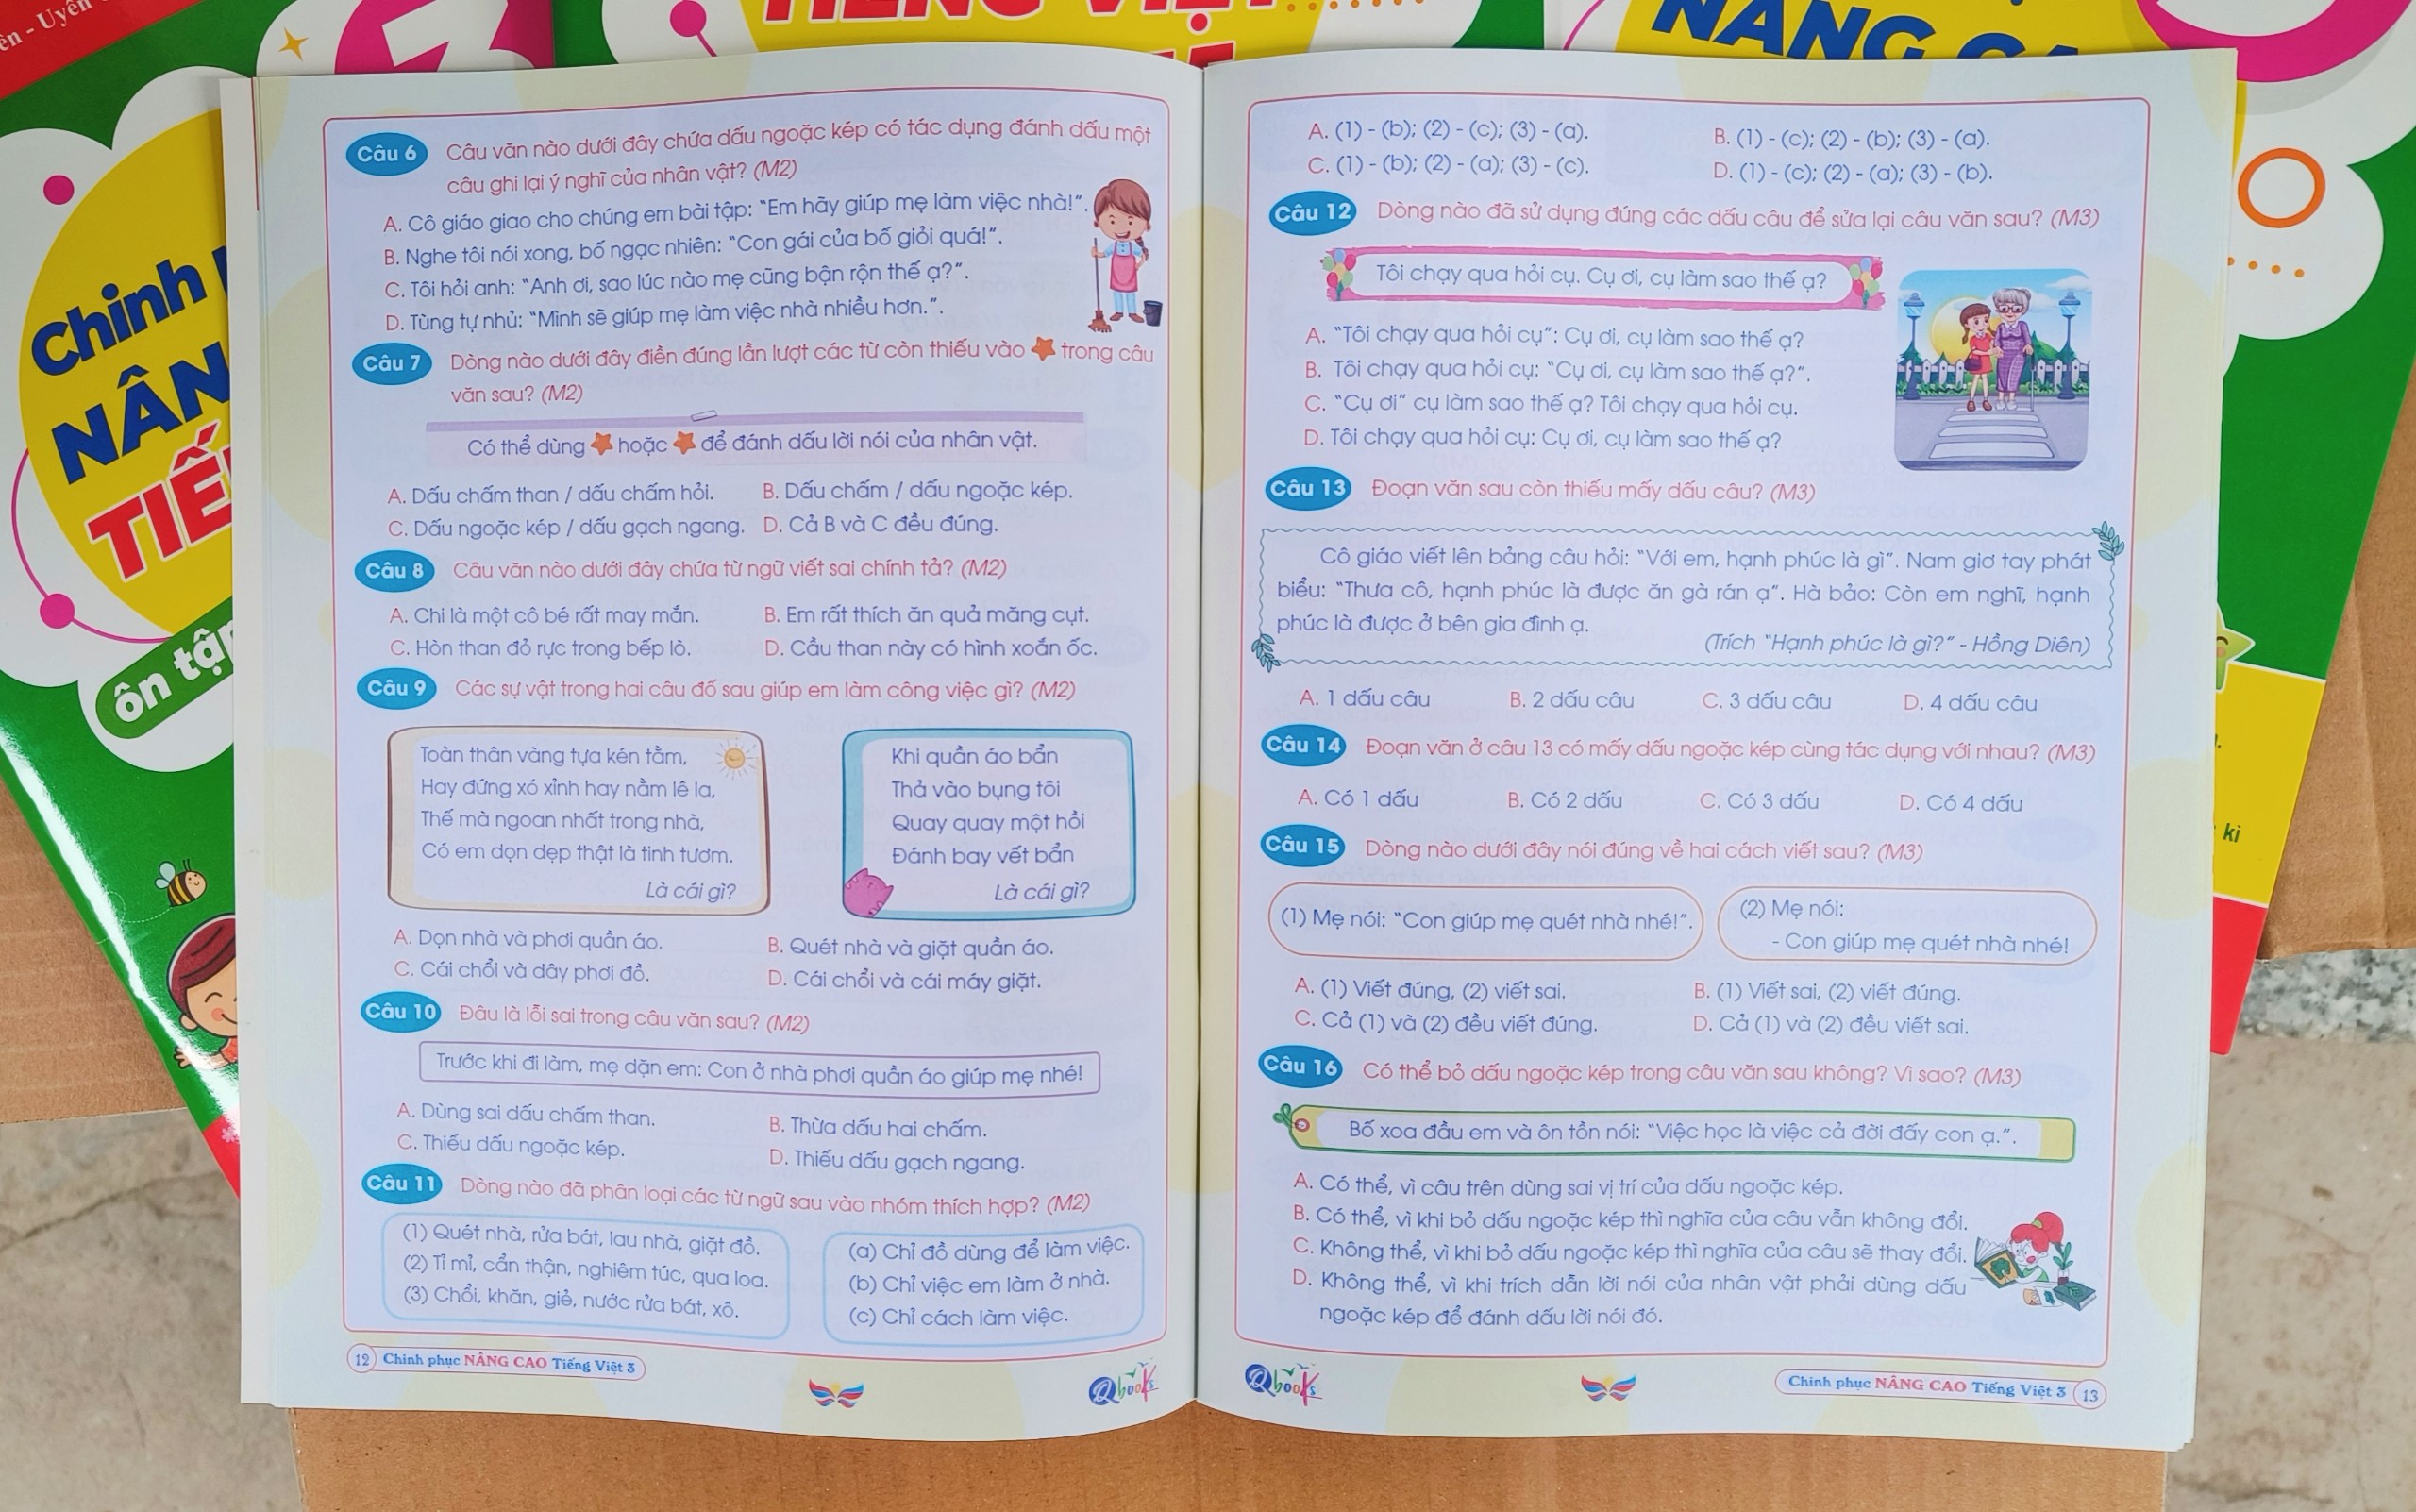 ên - Uyên
TIẾNG VIỆT
NÂNG CA
Chinh
NÂN
TIẾ
ôn tập
kì
Câu 6 Câu văn nào dưới đây chứa dấu ngoặc kép có tác dụng đánh dấu một
câu ghi lại ý nghĩ của nhân vật? (M2)
A. Cô giáo giao cho chúng em bài tập: “Em hãy giúp mẹ làm việc nhà!”.
B. Nghe tôi nói xong, bố ngạc nhiên: “Con gái của bố giỏi quá!”.
C. Tôi hỏi anh: “Anh ơi, sao lúc nào mẹ cũng bận rộn thế ạ?”.
D. Tùng tự nhủ: “Mình sẽ giúp mẹ làm việc nhà nhiều hơn.”.
Câu 7 Dòng nào dưới đây điền đúng lần lượt các từ còn thiếu vào trong câu
văn sau? (M2)
Có thể dùng hoặc để đánh dấu lời nói của nhân vật.
A. Dấu chấm than / dấu chấm hỏi. B. Dấu chấm / dấu ngoặc kép.
C. Dấu ngoặc kép / dấu gạch ngang. D. Cả B và C đều đúng.
Câu 8 Câu văn nào dưới đây chứa từ ngữ viết sai chính tả? (M2)
A. Chi là một cô bé rất may mắn. B. Em rất thích ăn quả măng cụt.
C. Hòn than đỏ rực trong bếp lò. D. Cầu than này có hình xoắn ốc.
Câu 9 Các sự vật trong hai câu đố sau giúp em làm công việc gì? (M2)
Toàn thân vàng tựa kén tằm,
Hay đứng xó xỉnh hay nằm lê la,
Thế mà ngoan nhất trong nhà,
Có em dọn dẹp thật là tinh tươm.
Là cái gì?
Khi quần áo bẩn
Thả vào bụng tôi
Quay quay một hồi
Đánh bay vết bẩn
Là cái gì?
A. Dọn nhà và phơi quần áo. B. Quét nhà và giặt quần áo.
C. Cái chổi và dây phơi đồ. D. Cái chổi và cái máy giặt.
Câu 10 Đâu là lỗi sai trong câu văn sau? (M2)
Trước khi đi làm, mẹ dặn em: Con ở nhà phơi quần áo giúp mẹ nhé!
A. Dùng sai dấu chấm than. B. Thừa dấu hai chấm.
C. Thiếu dấu ngoặc kép. D. Thiếu dấu gạch ngang.
Câu 11 Dòng nào đã phân loại các từ ngữ sau vào nhóm thích hợp? (M2)
(1) Quét nhà, rửa bát, lau nhà, giặt đồ.
(2) Tỉ mỉ, cẩn thận, nghiêm túc, qua loa.
(3) Chổi, khăn, giẻ, nước rửa bát, xô.
(a) Chỉ đồ dùng để làm việc.
(b) Chỉ việc em làm ở nhà.
(c) Chỉ cách làm việc.
12 Chinh phục NÂNG CAO Tiếng Việt 3
Qbooks
A. (1) - (b); (2) - (c); (3) - (a). B. (1) - (c); (2) - (b); (3) - (a).
C. (1) - (b); (2) - (a); (3) - (c). D. (1) - (c); (2) - (a); (3) - (b).
Câu 12 Dòng nào đã sử dụng đúng các dấu câu để sửa lại câu văn sau? (M3)
Tôi chạy qua hỏi cụ. Cụ ơi, cụ làm sao thế ạ?
A. “Tôi chạy qua hỏi cụ”: Cụ ơi, cụ làm sao thế ạ?
B. Tôi chạy qua hỏi cụ: “Cụ ơi, cụ làm sao thế ạ?”.
C. “Cụ ơi” cụ làm sao thế ạ? Tôi chạy qua hỏi cụ.
D. Tôi chạy qua hỏi cụ: Cụ ơi, cụ làm sao thế ạ?
Câu 13 Đoạn văn sau còn thiếu mấy dấu câu? (M3)
Cô giáo viết lên bảng câu hỏi: “Với em, hạnh phúc là gì”. Nam giơ tay phát
biểu: “Thưa cô, hạnh phúc là được ăn gà rán ạ”. Hà bảo: Còn em nghĩ, hạnh
phúc là được ở bên gia đình ạ.
(Trích “Hạnh phúc là gì?” - Hồng Diên)
A. 1 dấu câu B. 2 dấu câu C. 3 dấu câu D. 4 dấu câu
Câu 14 Đoạn văn ở câu 13 có mấy dấu ngoặc kép cùng tác dụng với nhau? (M3)
A. Có 1 dấu B. Có 2 dấu C. Có 3 dấu D. Có 4 dấu
Câu 15 Dòng nào dưới đây nói đúng về hai cách viết sau? (M3)
(1) Mẹ nói: “Con giúp mẹ quét nhà nhé!”.
(2) Mẹ nói:
- Con giúp mẹ quét nhà nhé!
A. (1) Viết đúng, (2) viết sai. B. (1) Viết sai, (2) viết đúng.
C. Cả (1) và (2) đều viết đúng. D. Cả (1) và (2) đều viết sai.
Câu 16 Có thể bỏ dấu ngoặc kép trong câu văn sau không? Vì sao? (M3)
Bố xoa đầu em và ôn tồn nói: “Việc học là việc cả đời đấy con ạ.”.
A. Có thể, vì câu trên dùng sai vị trí của dấu ngoặc kép.
B. Có thể, vì khi bỏ dấu ngoặc kép thì nghĩa của câu vẫn không đổi.
C. Không thể, vì khi bỏ dấu ngoặc kép thì nghĩa của câu sẽ thay đổi.
D. Không thể, vì khi trích dẫn lời nói của nhân vật phải dùng dấu
ngoặc kép để đánh dấu lời nói đó.
Qbooks
Chinh phục NÂNG CAO Tiếng Việt 3 13